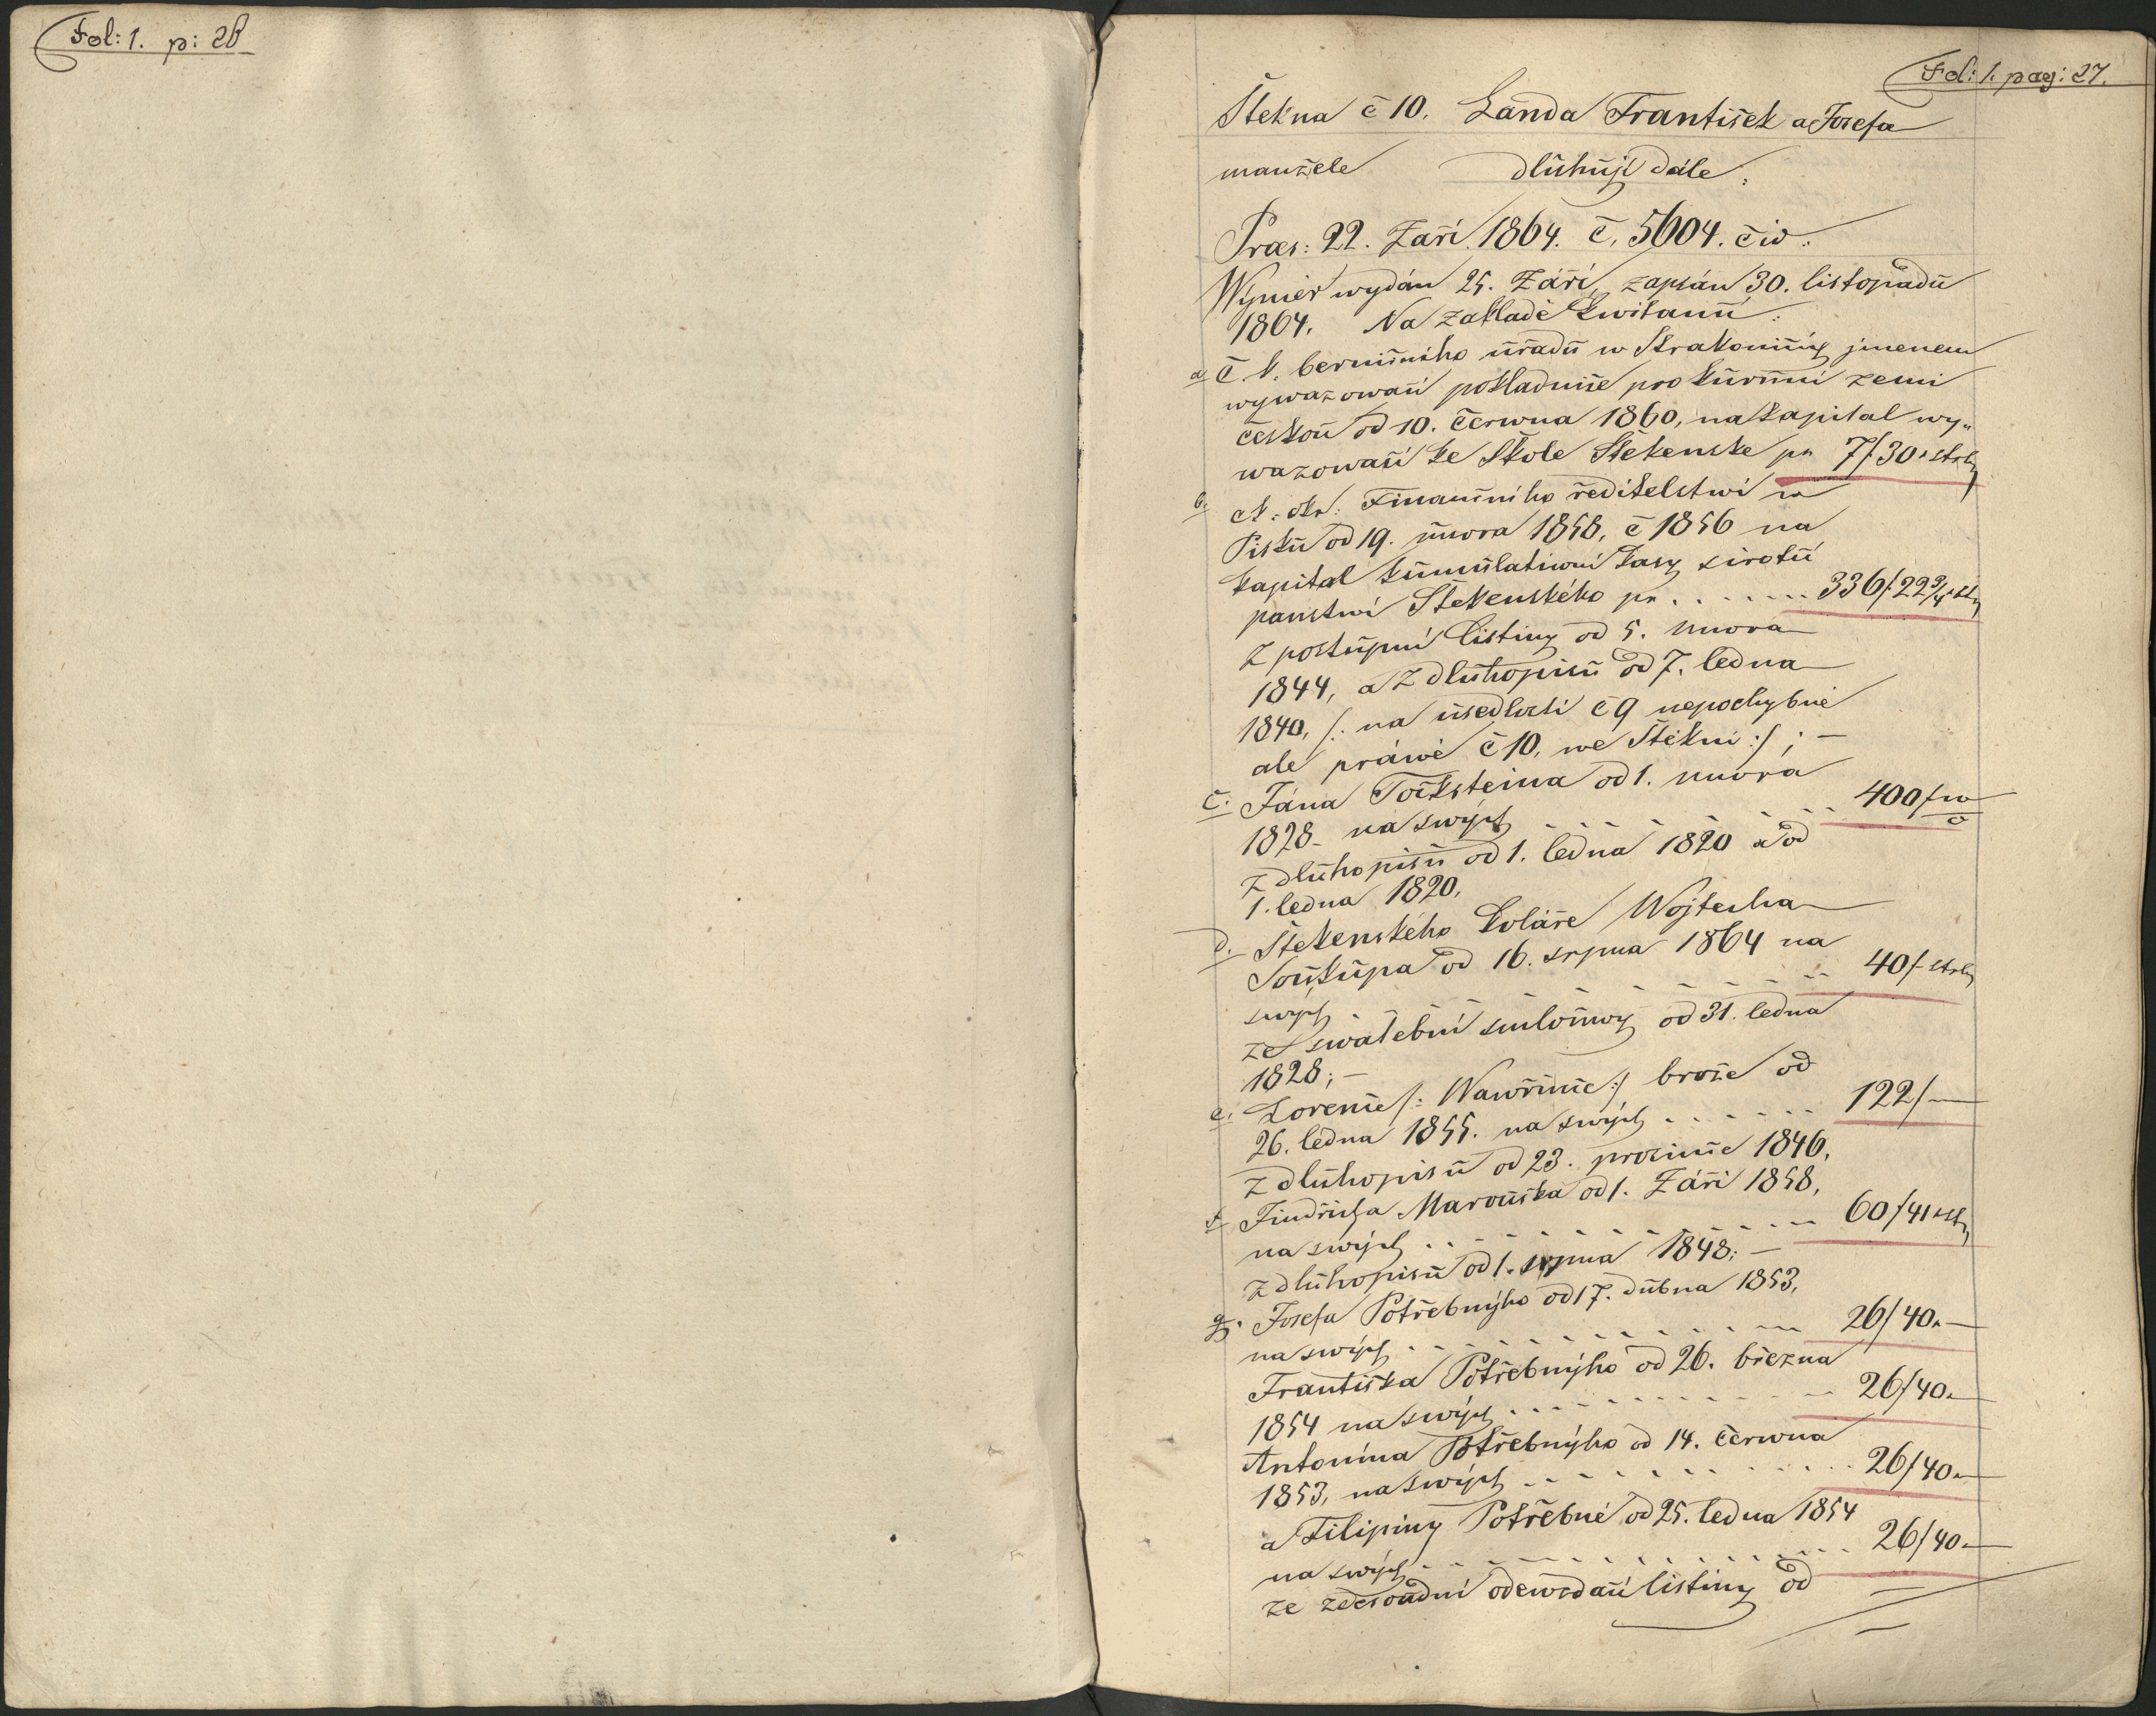 Fol: 1. p: 26
Fol: 1. pag: 27.
Štekna č 10. Landa František a Josefa
manžele dlůhůjí dále:
Præs: 22. Zaří 1864. č. 5604. čiv:
Wýměr wydán 25. Záři, zapsán 30. listopadů
1864. Na zakladě kwitanií:
a, C. k. berničního ůřadů w Strakonicých jmenem
wywazowaní pokladnice pro kůrůnní zemi
českoů od 10. Června 1860, na kapital wy„
wazowaní ke Škole Štekenske pr 7f 30 x střy
b. ck: okr: Finančního ředitelstwi w
Pisků od 19. ůnora 1858, č 1856 na
kapital kůmůlatiwni kasy sirotů
panstwí Štekenského pr . . . . . . . 336f. 22 3/4 x sty
z postůpní listiny od 5. ůnora
1844, a z dlůhopisů od 7. ledna
1840, /: na ůsedlosti č 9 nepochybně
ale práwě č 10, we Štěkni :/ ; —
c. Jána Točksteina od 1. ůnora
1828 na swých . . . . . . . 400f w
z dlůhopisů od 1. ledna 1820 a od
1. ledna 1820.
d. Štekenského koláře Wojtecha
Soůkůpa od 16. srpna 1864 na
swých . . . . . . . 40f střy
ze swatební smloůwy od 31. ledna
1828; —
e. Lorence /: Wawřince :/ brože od
26. ledna 1855. na swých . . . . . . 122f —
z dlůhopisů od 23. prosince 1846.
f. Jindřicha Maroůška od 1. Záři 1858,
na swých . . . . . . . 60f 41 x sty
z dlůhopisů od 1. srpna 1848; —
g. Josefa Potřebnýho od 17. důbna 1853,
na swých . . . . . . . 26f 40 x —
Františka Potřebnýho od 26. března
1854 na swých . . . . . . . 26f 40 x
Antonína Potřebnýho od 14. Června
1853, na swých . . . . . . . 26f 40 x —
a Filipiny Potřebné od 25. ledna 1854
na swých . . . . . . . 26f 40 x —
ze zdesoůdní odewzdaní listiny od